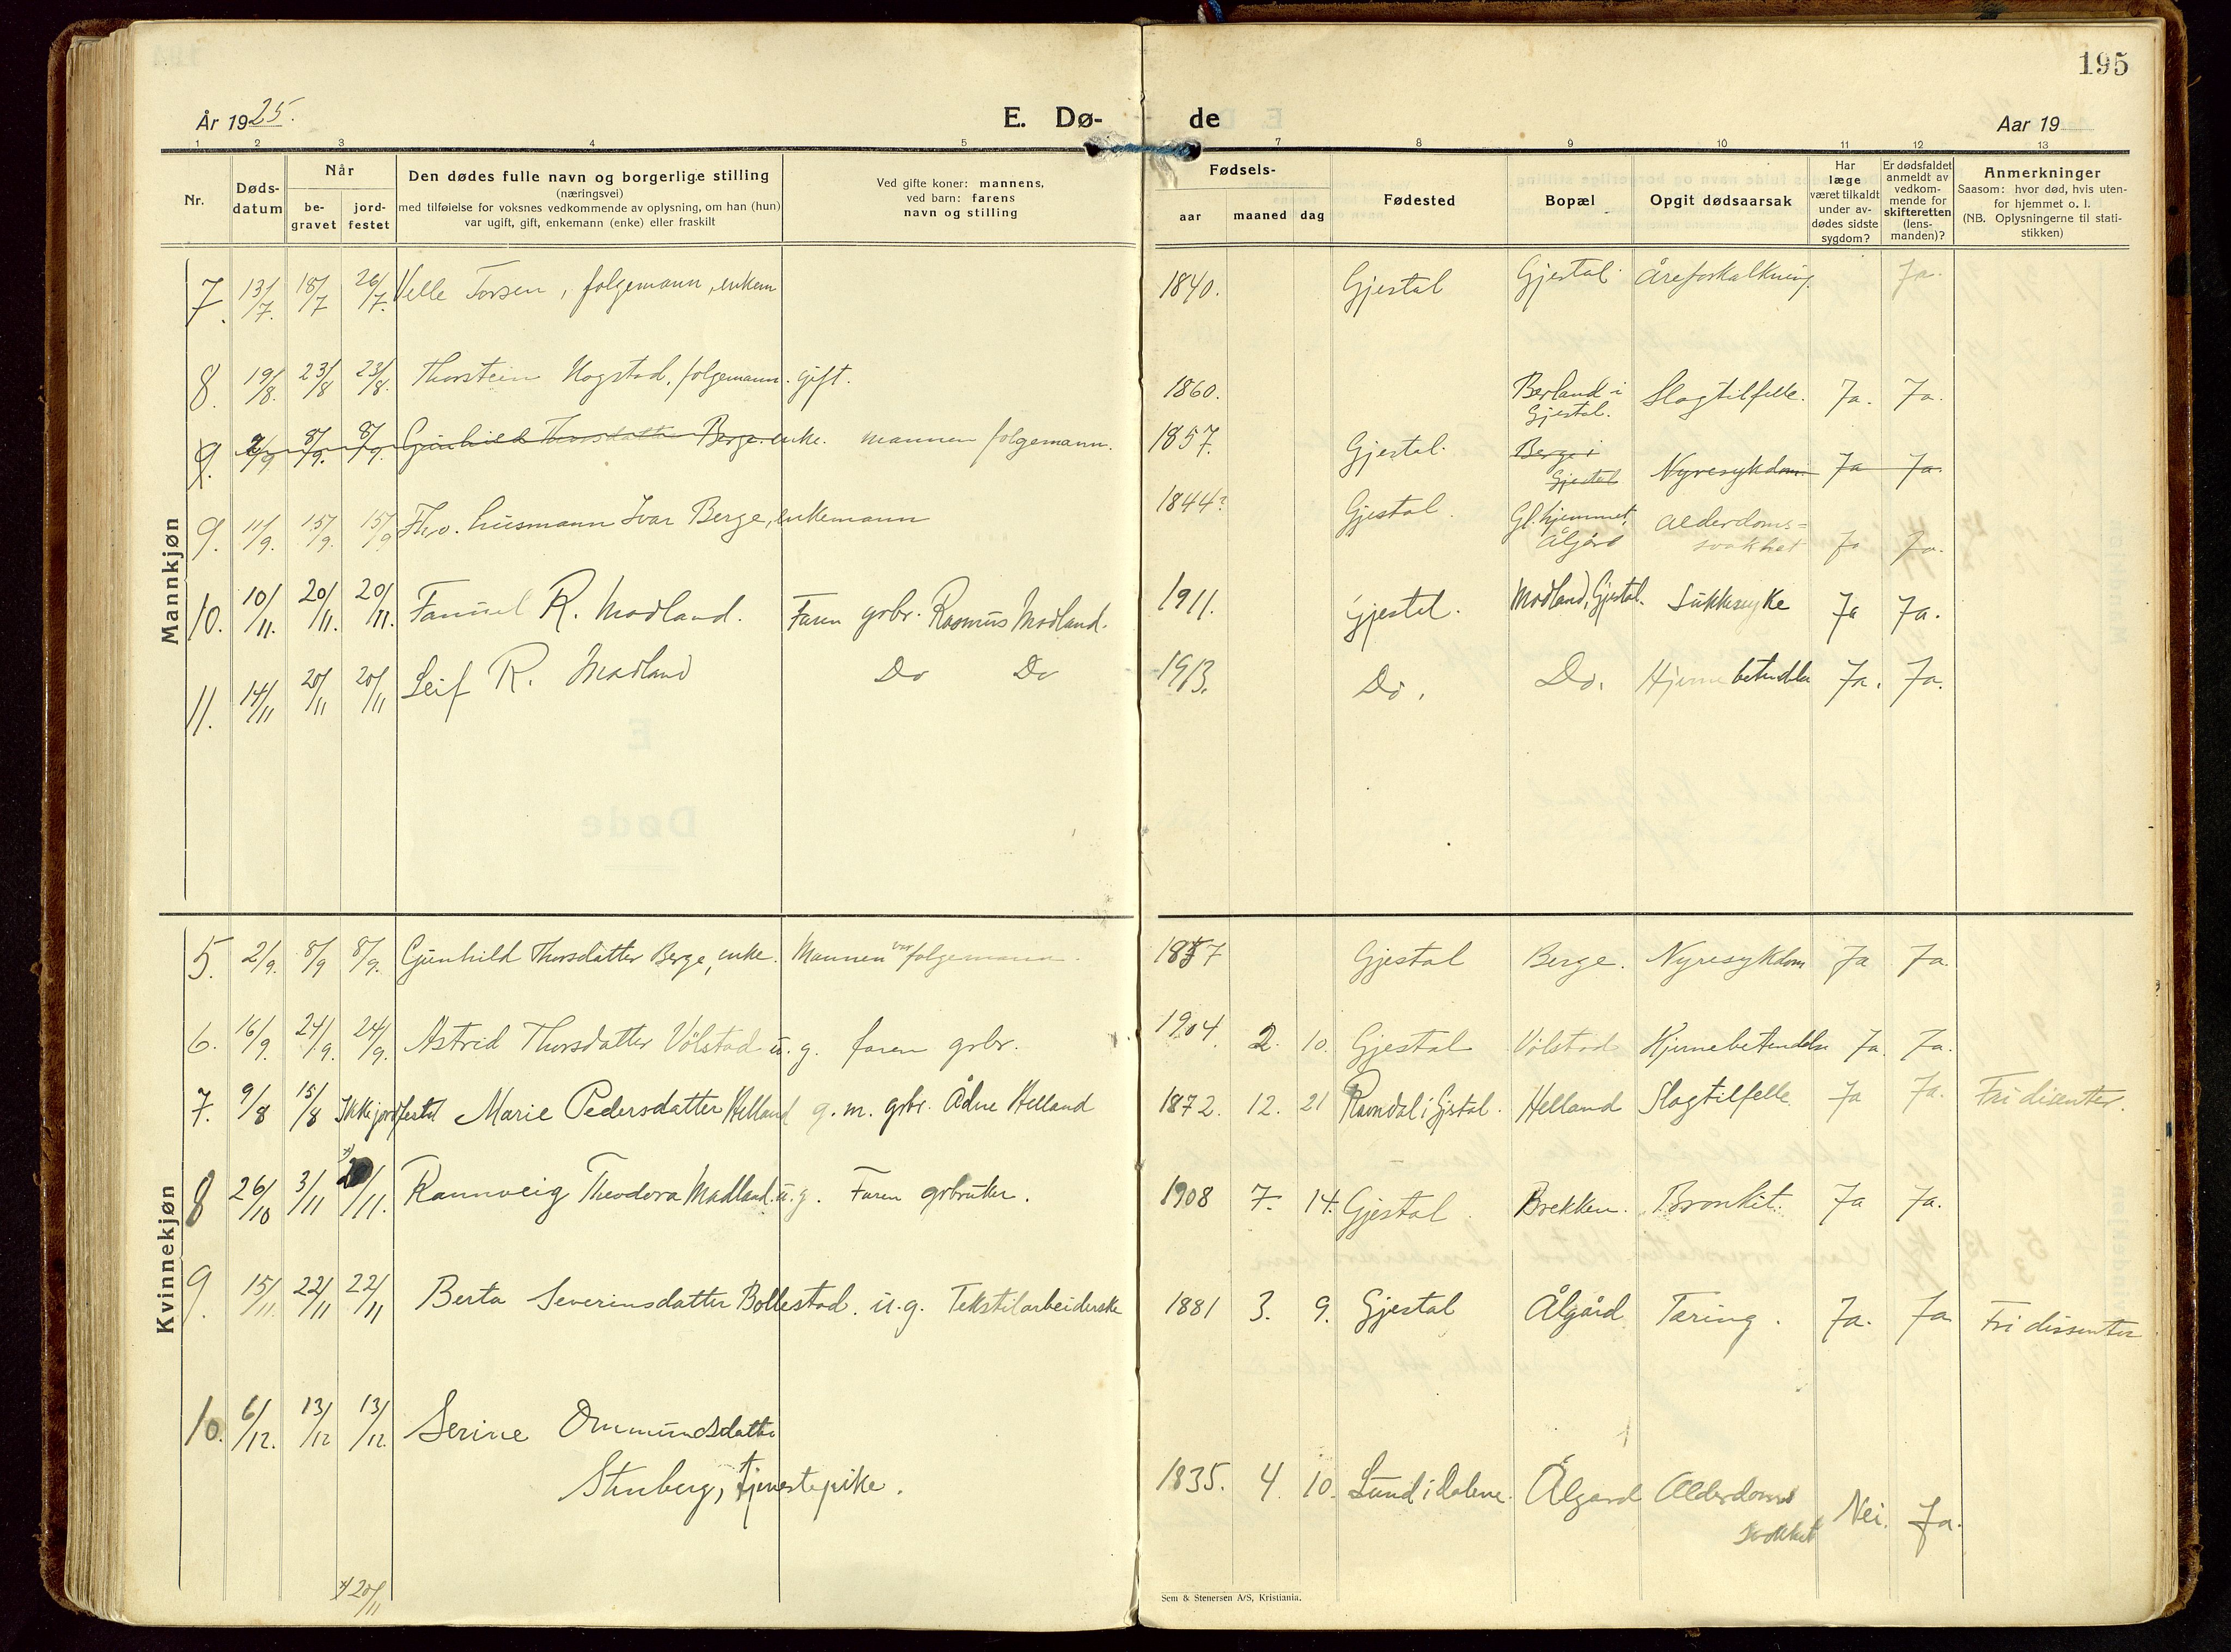 195
År 1925.
E. Dø-
de
Aar 19
1 2 3 4 5 7 8 9 10 11 12 13
Nr.
Døds-
datum
Når
be-
gravet
jord-
festet
Den dødes fulle navn og borgerlige stilling
(næringsvei)
med tilføielse for voksnes vedkommende av oplysning, om han (hun)
var ugift, gift, enkemann (enke) eller fraskilt
Ved gifte koner: mannens,
ved barn: farens
navn og stilling
Fødsels-
aar maaned dag
Fødested
Bopæl
Opgit dødsaarsak
Har
læge
været tilkaldt
under av-
dødes sidste
sygdom?
Er dødsfaldet
anmeldt av
vedkom-
mende for
skifteretten
(lens-
manden)?
Anmerkninger
Saasom: hvor død, hvis uten-
for hjemmet o. l.
(NB. Oplysningerne til stati-
stikken)
Mannkjøn
7. 13/7. 18/7 26/7. Velle Torsen, folgemann, enkem 1840. Gjestal Gjestal. Åreforkalkning. Ja.
8. 19/8. 23/8 23/8. Thorstein Hogstad, folgemann. gift. 1860. Berland i Gjestal. Slagtilfelle. Ja. Ja.
9. 2/9 8/9. 8/9. Gunhild Thorsdatter Berge. enke. mannen folgemann. 1857. Gjestal. Berge i Gjestal Nyresykdom. Ja Ja.
9. 11/9. 15/9. 15/9 Fhv. husmann Ivar Berge, enkemann 1844? Gjestal. Gl. hjemmet, Ålgård Alderdoms=
svakhet Ja Ja.
10. 10/11. 20/11. 20/11. Fanuel R. Modland. Faren grbr. Rasmus Modland. 1911. Gjestal. Modland, Gjestal. Sukkersyke Ja Ja.
11. 14/11 20/11 20/11 Leif R. Madland Do Do 1913. Do. Do. Hjernebetendelse Ja. Ja.
Kvinnekjøn
5. 2/9. 8/9 8/9. Gunhild Thorsdatter Berge, enke. Mannen var folgemann. 1857 Gjestal Berge. Nyresykdom Ja Ja.
6. 16/9. 24/9. 24/9. Astrid Thorsdatter Völstad u. g. faren grbr. 1904. 2. 10. Gjestal Völstad Hjernebetendelse Ja. Ja.
7. 9/8 15/8 Ikke jordfestet Marie Pedersdatter Helland g. m. grbr. Ådne Helland 1872. 12. 21 Ravndal i Gjestal. Helland Slagtilfelle. Ja Ja. Fri disenter.
8 26/10 3/11 x) /11. Rannveig Theodora Madland. u. g. Faren grbruker. 1908 7. 14. Gjestal. Brekken. Bronkit. Ja Ja.
9. 15/11. 22/11 22/11 Berta Severinsdatter Bollestad. u. g. Tekstilarbeiderske 1881 3. 9. Gjestal Ålgård Tæring. Ja. Ja Fri dissenter
10. 6/12. 13/12 13/12. Serine Ommundsdatter
Stenberg, tjenestepike. 1835. 4. 10. Lund i Dalene. Ålgard Alderdoms
svakhet Nei. Ja.
x) 20/11
Sem & Stenersen A/S, Kristiania.